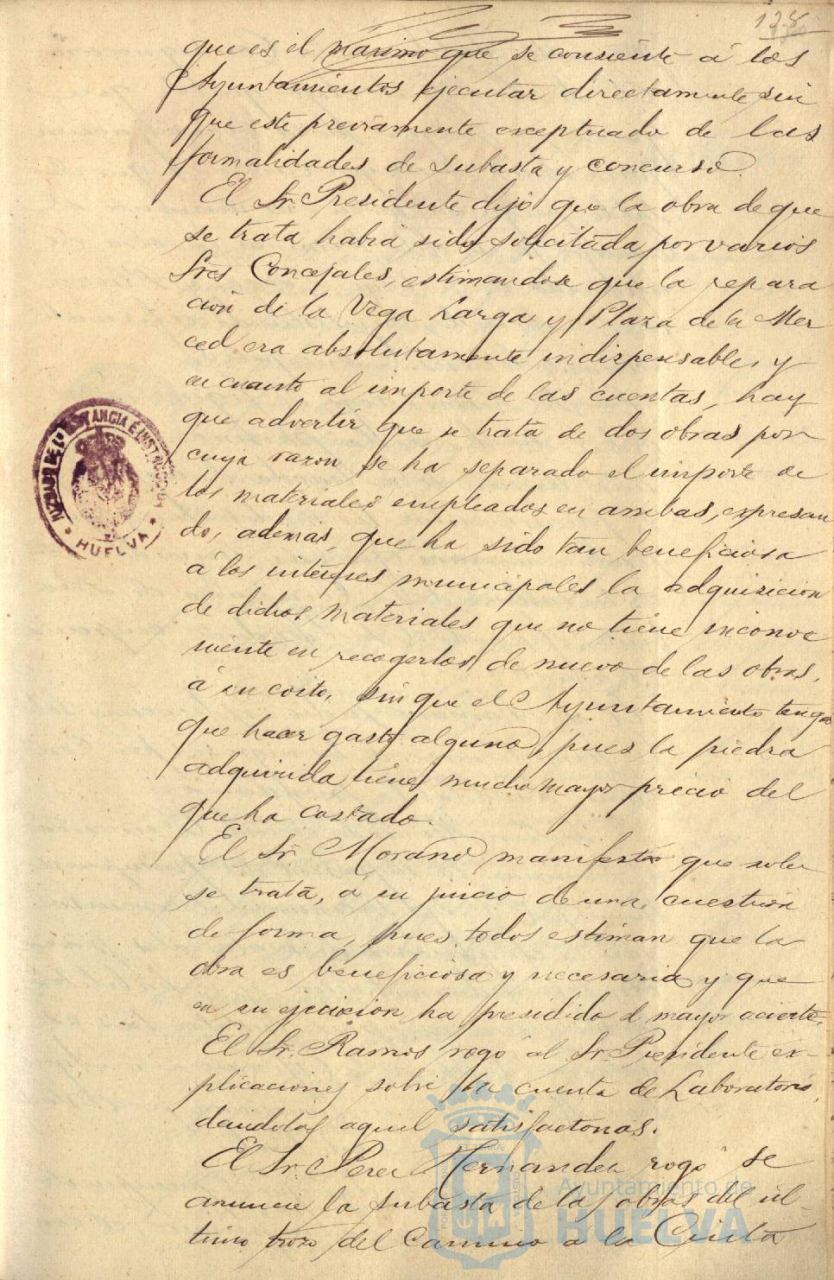 128
que es el maximo que se consiente á los
Ayuntamientos ejecutar directamente sin
que este previamente exceptuado de las
formalidades de subasta y concurso.
El Sr. Presidente dijo que la obra de que
se trata habia sido solicitada por varios
Sres Concejales, estimandose que la repara
cion de la Vega Larga y Plaza de la Mer
ced era absolutamente indispensable, y
en cuanto al importe de las cuentas, hay
que advertir que se trata de dos obras por
cuya razon se ha separado el importe de
los materiales empleados en ambas, expresan
do, además, que ha sido tan beneficiosa
á los intereses municipales la adquisicion
de dichos materiales que no tiene inconve
niente en recogerlos de nuevo de las obras,
á su costo, sin que el Ayuntamiento tenga
que hacer gasto alguno, pues la piedra
adquirida tiene mucho mayor precio del
que ha costado.
El Sr. Morano manifestó que solo
se trata, a su juicio de una cuestion
de forma, pues todos estiman que la
obra es beneficiosa y necesaria y que
en su ejecicion ha presidido el mayor acierto.
El Sr. Ramos rogó al Sr. Presidente ex-
plicaciones sobre la cuenta de Laboratorio,
dandolas aquel satisfactorias.
El Sr. Perez Hernandez rogó se
anuncie la subasta de las obras del ul-
timo trozo del Camino a la Cinta
JUZGADO DE 1ª INSTANCIA É INSTRUCCION
* HUELVA *
Ayuntamiento de
HUELVA